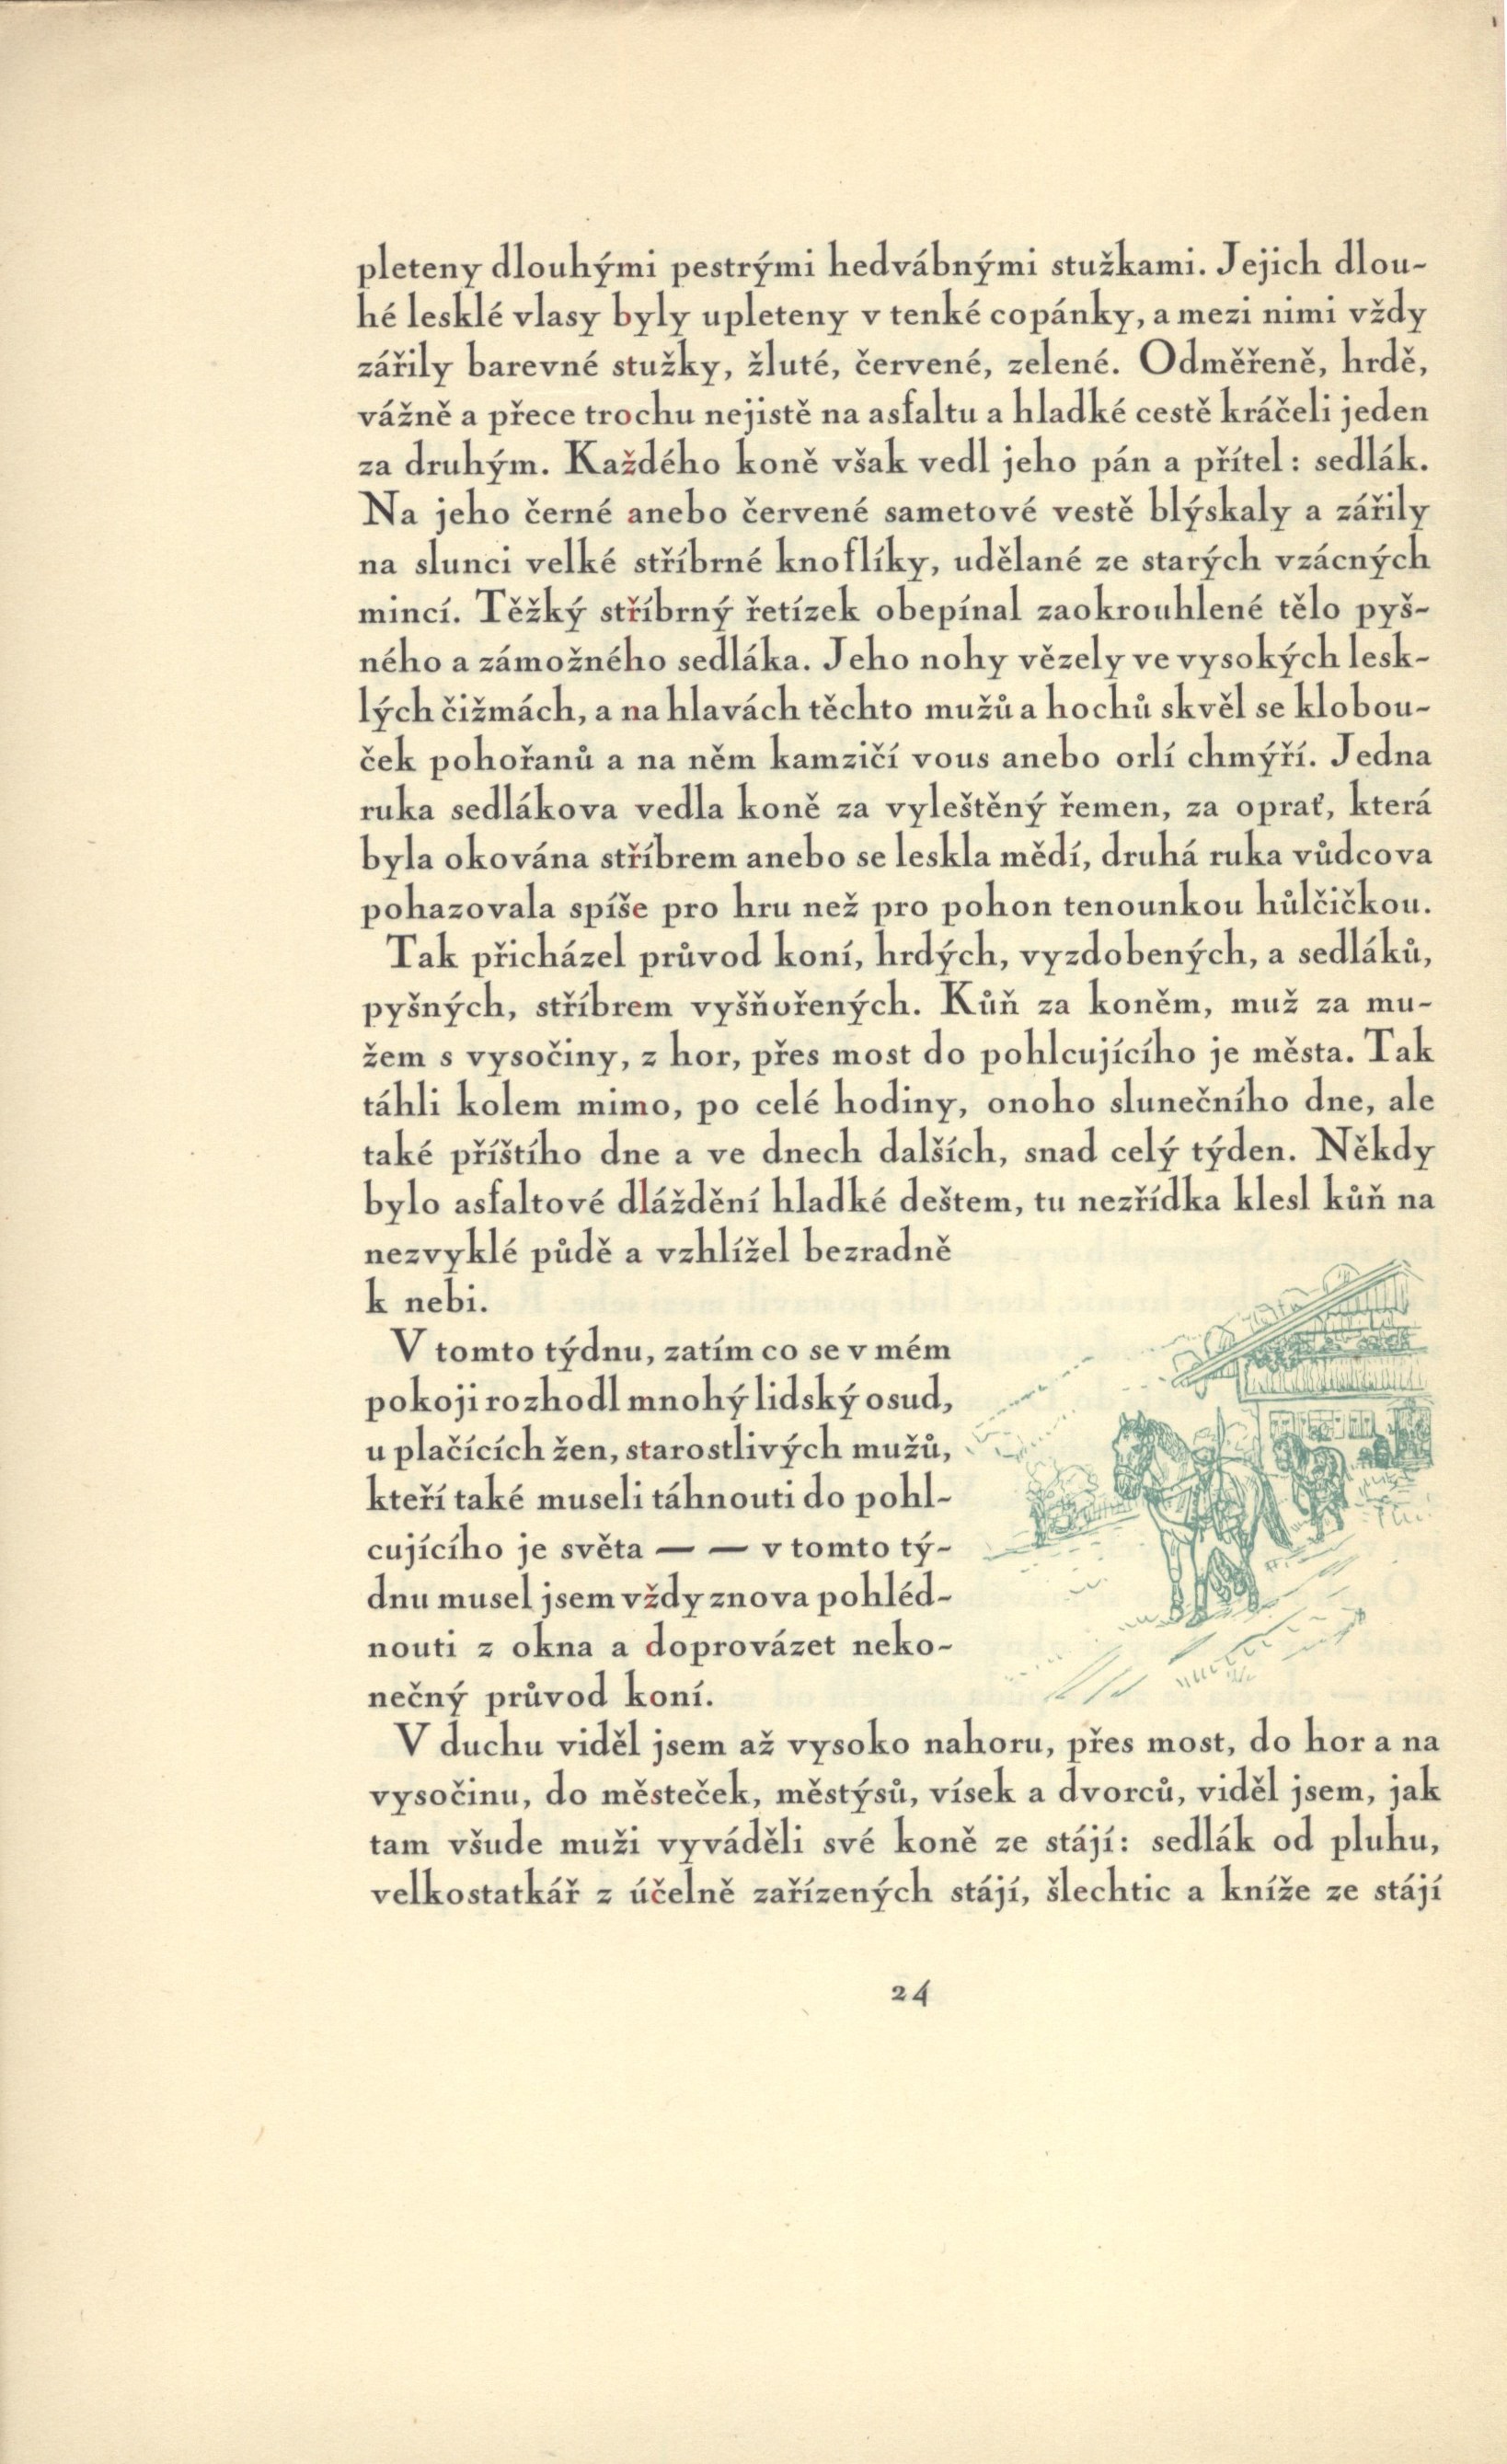 pleteny dlouhými pestrými hedvábnými stužkami. Jejich dlou-
hé lesklé vlasy byly upleteny v tenké copánky, a mezi nimi vždy
zářily barevné stužky, žluté, červené, zelené. Odměřeně, hrdě,
vážně a přece trochu nejistě na asfaltu a hladké cestě kráčeli jeden
za druhým. Každého koně však vedl jeho pán a přítel: sedlák.
Na jeho černé anebo červené sametové vestě blýskaly a zářily
na slunci velké stříbrné knoflíky, udělané ze starých vzácných
mincí. Těžký stříbrný řetízek obepínal zaokrouhlené tělo pyš-
ného a zámožného sedláka. Jeho nohy vězely ve vysokých lesk-
lých čižmách, a na hlavách těchto mužů a hochů skvěl se klobou-
ček pohořanů a na něm kamzičí vous anebo orlí chmýří. Jedna
ruka sedlákova vedla koně za vyleštěný řemen, za oprať, která
byla okována stříbrem anebo se leskla mědí, druhá ruka vůdcova
pohazovala spíše pro hru než pro pohon tenounkou hůlčičkou.
Tak přicházel průvod koní, hrdých, vyzdobených, a sedláků,
pyšných, stříbrem vyšňořených. Kůň za koněm, muž za mu-
žem s vysočiny, z hor, přes most do pohlcujícího je města. Tak
táhli kolem mimo, po celé hodiny, onoho slunečního dne, ale
také příštího dne a ve dnech dalších, snad celý týden. Někdy
bylo asfaltové dláždění hladké deštem, tu nezřídka klesl kůň na
nezvyklé půdě a vzhlížel bezradně
k nebi.
V tomto týdnu, zatím co se v mém
pokoji rozhodl mnohý lidský osud,
u plačících žen, starostlivých mužů,
kteří také museli táhnouti do pohl-
cujícího je světa — — v tomto tý-
dnu musel jsem vždy znova pohléd-
nouti z okna a doprovázet neko-
nečný průvod koní.
V duchu viděl jsem až vysoko nahoru, přes most, do hor a na
vysočinu, do městeček, městýsů, vísek a dvorců, viděl jsem, jak
tam všude muži vyváděli své koně ze stájí: sedlák od pluhu,
velkostatkář z účelně zařízených stájí, šlechtic a kníže ze stájí
24